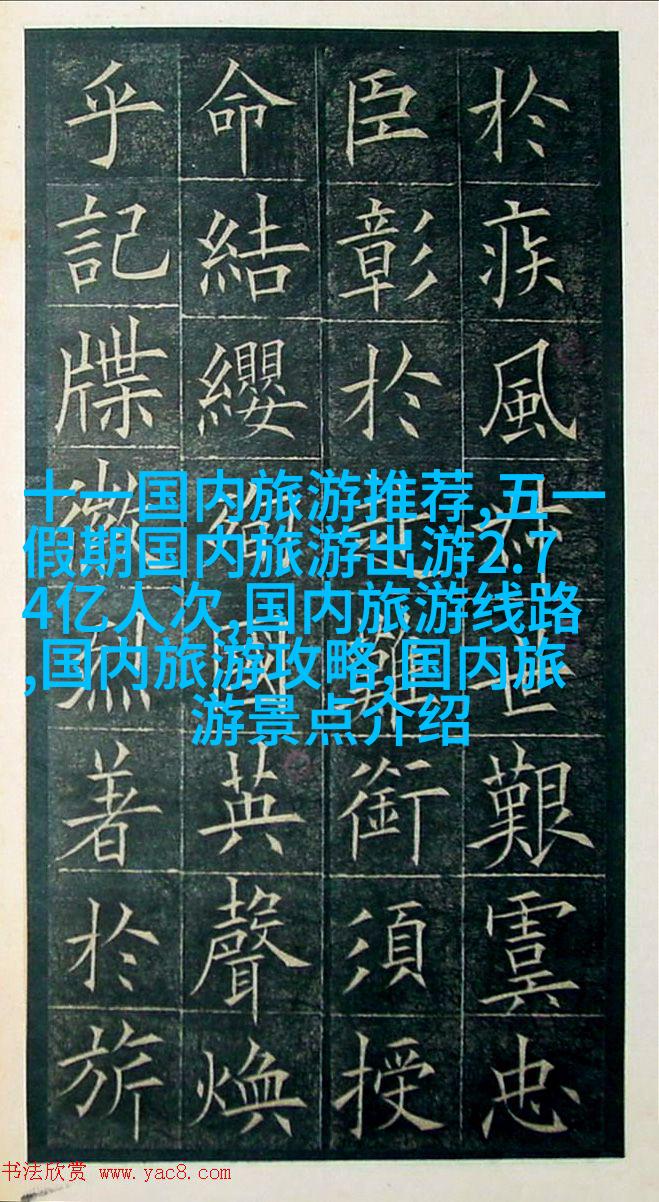 於疾風世艱虞忠
臣彰於難銜須授
命結纓國英聲煥
乎記牒徽烈著於旂
十一国内旅游推荐,五一
假期国内旅游出游2.7
4亿人次,国内旅游线路
,国内旅游攻略,国内旅
游景点介绍
书法欣赏 www.yac8.com